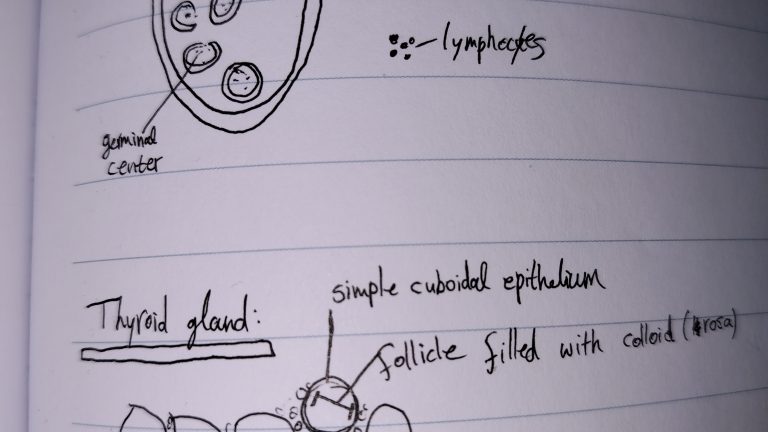 lymphocytes
germinal
center
simple cuboidal epithelium
Thyroid gland:
follicle filled with colloid (rosa)